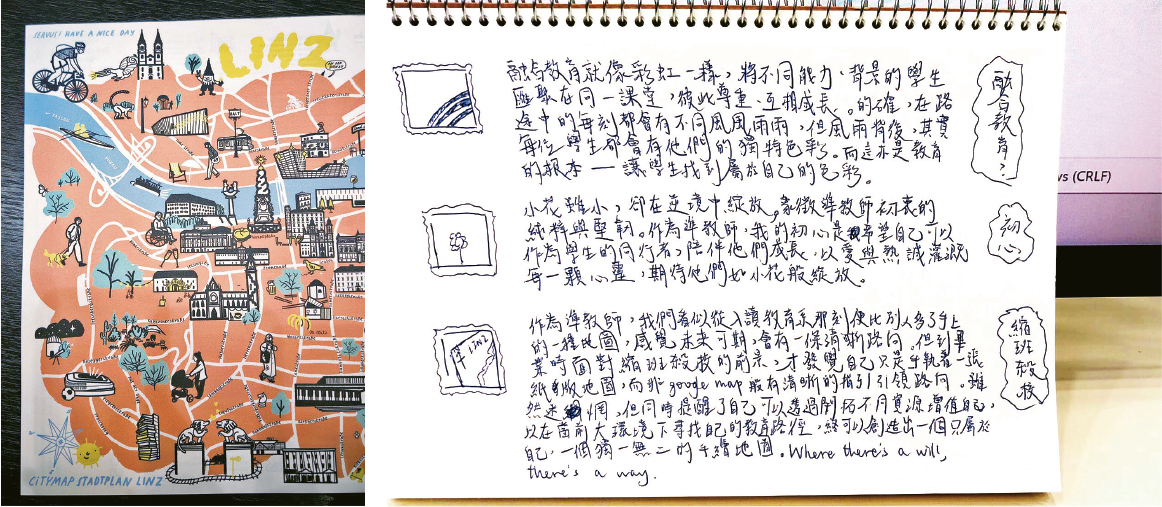 SERVUS! HAVE A NICE DAY
LINZ
CITYMAP STADTPLAN LINZ
融合教育就像彩虹一樣，將不同能力、背景的學生
匯聚在同一課堂，彼此尊重、互相成長。的確，在路
途中的每刻都會有不同風風雨雨，但風雨背後，其實
每位學生都會有他們的獨特色彩。而這亦是教育
的根本——讓學生找到屬於自己的色彩。
融合教育？
小花雖小，卻在逆境中綻放，象徵準教師初衷的
純粹與堅韌。作為準教師，我的初心是希望自己可以
作為學生的同行者，陪伴他們成長，以愛與熱誠灌溉
每一顆心靈，期待他們如小花般綻放。
初心
作為準教師，我們看似從入讀教育系那刻便比別人多了手上
的一樣地圖，感覺未來可期，會有一條清晰路向。但到畢
業時面對縮班殺校的前景，才發覺自己只是手執着一張
紙版地圖，而非google map般有清晰的指引引領路向。雖
然迷惘，但同時提醒了自己可以透過開拓不同資源增值自己，
以在當前大環境下尋找自己的教育路徑，終可以創造出一個只屬於
自己，一個獨一無二的手繪地圖。Where there's a will,
there's a way.
縮班殺校
LINZ
ws (CRLF)